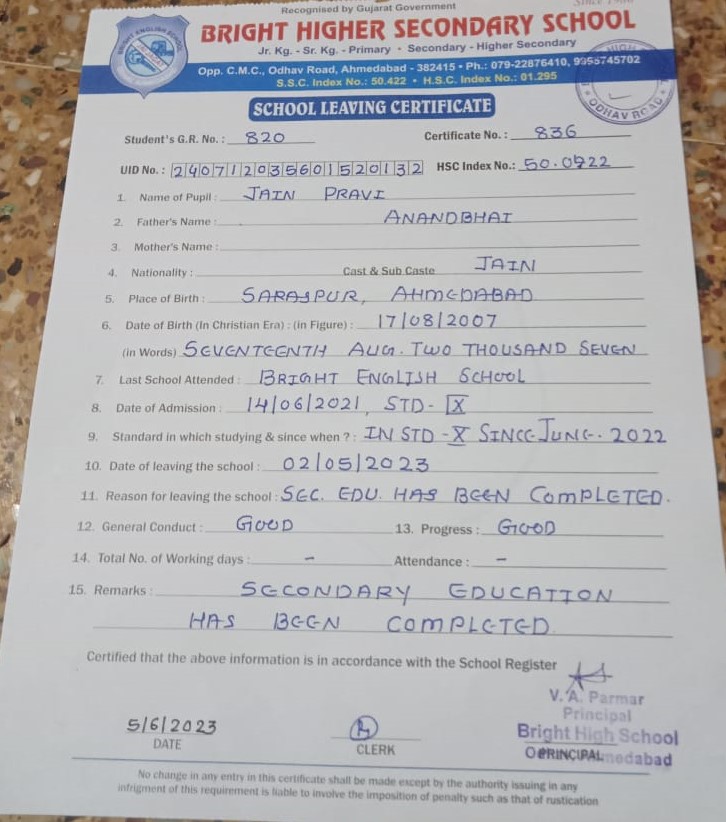 Recognised by Gujarat Government
BRIGHT HIGHER SECONDARY SCHOOL
Jr. Kg. - Sr. Kg. - Primary • Secondary - Higher Secondary
Opp. C.M.C., Odhav Road, Ahmedabad - 382415 • Ph.: 079-22876410, 9955745702
S.S.C. Index No.: 50.422 • H.S.C. Index No.: 01.295
BRIGHT ENGLISH SCHOOL
ODHAV ROAD
SCHOOL LEAVING CERTIFICATE
Student's G.R. No. : 820 Certificate No. : 836
UID No. : 240712035601520132 HSC Index No.: 50.0422
1. Name of Pupil : JAIN PRAVI
2. Father's Name : ANANDBHAI
3. Mother's Name :
4. Nationality : Cast & Sub Caste JAIN
5. Place of Birth : SARASPUR, AHMEDABAD
6. Date of Birth (In Christian Era) : (in Figure) : 17/08/2007
(in Words) SEVENTEENTH AUG. TWO THOUSAND SEVEN
7. Last School Attended : BRIGHT ENGLISH SCHOOL
8. Date of Admission : 14/06/2021, STD- IX
9. Standard in which studying & since when ? : IN STD - X SINCE JUNE. 2022
10. Date of leaving the school : 02/05/2023
11. Reason for leaving the school : SEC. EDU. HAS BEEN COMPLETED.
12. General Conduct : GOOD 13. Progress : GOOD
14. Total No. of Working days : - Attendance : -
15. Remarks : SECONDARY EDUCATION
HAS BEEN COMPLETED
Certified that the above information is in accordance with the School Register
V. A. Parmar
Principal
Bright High School
5/6/2023
DATE
CLERK
PRINCIPAL
No change in any entry in this certificate shall be made except by the authority issuing in any
infrigment of this requirement is liable to involve the imposition of penalty such as that of rustication